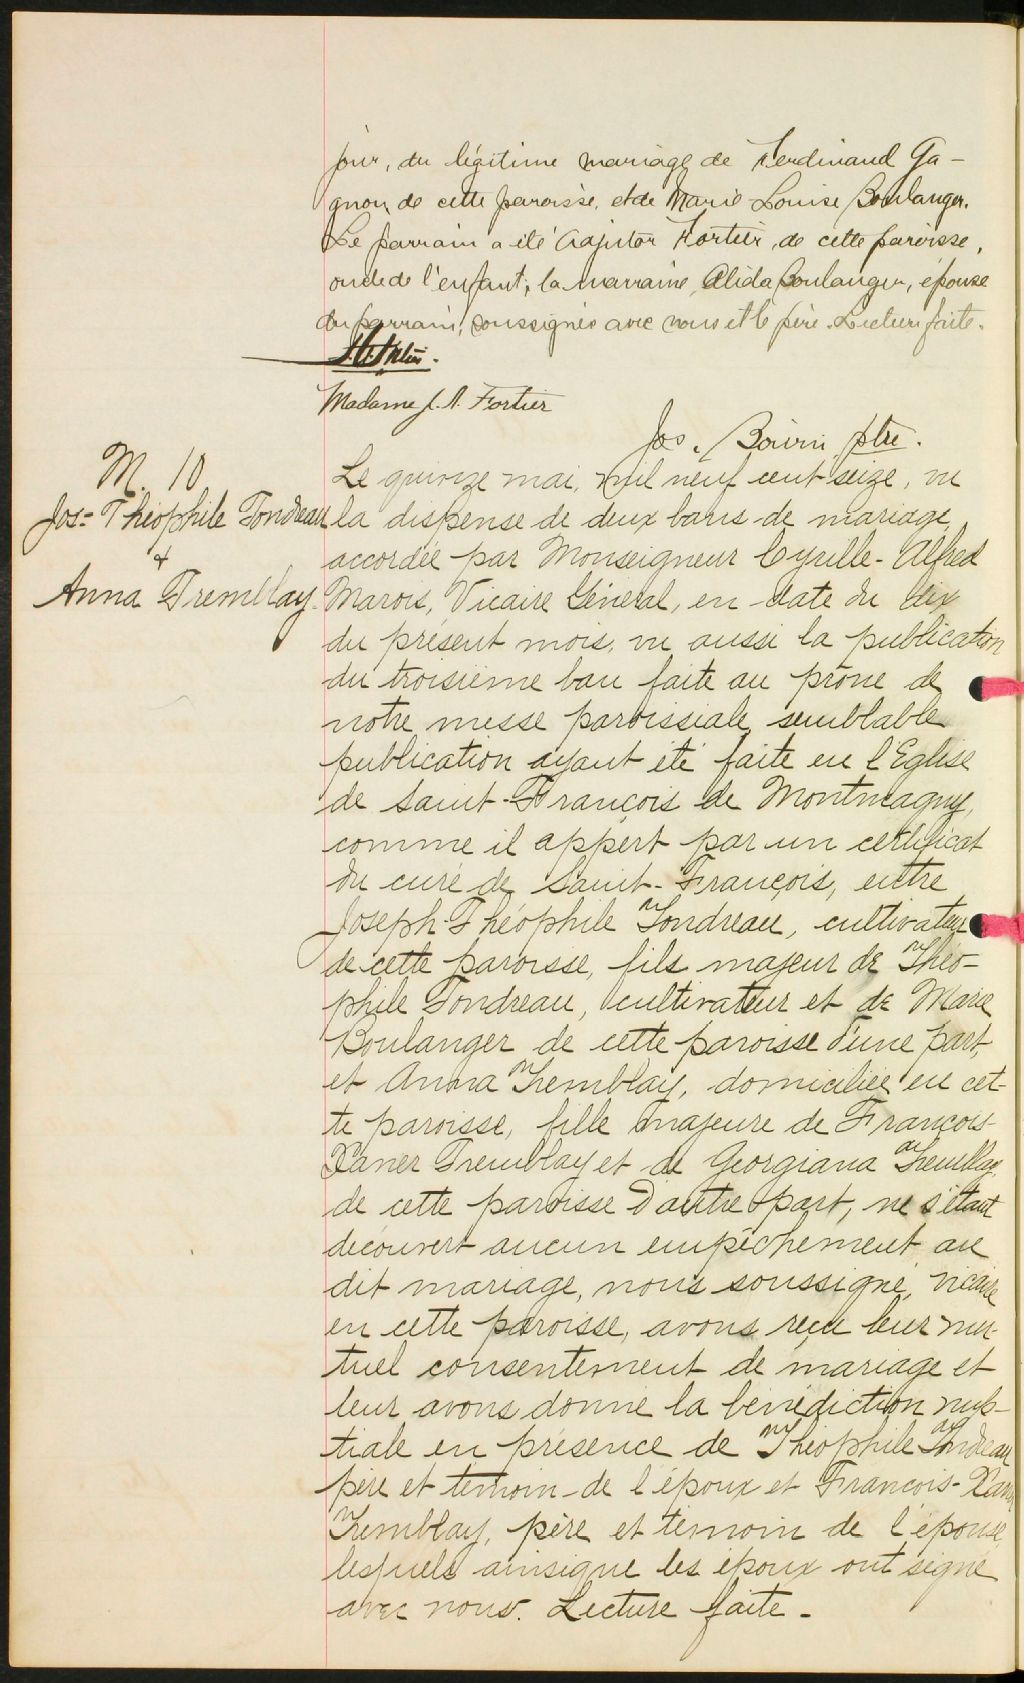 jour, du légitime mariage de Ferdinand Ga-
gnon, de cette paroisse, et de Marie-Louise Boulanger.
Le parrain a été Fortier, de cette paroisse,
oncle de l'enfant; la marraine, Alida Boulanger, épouse
du parrain, soussignés avec nous et le père. Lecture faite.
Madame J. A. Fortier
Jos. ptre.
M. 10
Jos= Théophile Fondreau
&
Anna Tremblay.
Le quinze mai, mil neuf cent seize, vu
la dispense de deux bans de mariage,
accordée par Monseigneur Cyrille-Alfred
Marois, Vicaire Général, en date du dix
du présent mois, vu aussi la publication
du troisième ban faite au prône de
notre messe paroissiale, semblable
publication ayant été faite en l'Eglise
de Saint-François de Montmagny,
comme il appert par un certificat
du curé de Saint-François, entre
Joseph-Théophile Fondreau, cultivateur
de cette paroisse, fils majeur de Théo-
phile Fondreau, cultivateur et de Marie
Boulanger de cette paroisse d'une part,
et Anna Tremblay, domiciliée en cet-
te paroisse, fille majeure de François-
Xavier Tremblay et de Georgiana Tremblay,
de cette paroisse d'autre part, ne s'étant
découvert aucun empêchement au
dit mariage, nous soussigné, vicaire
en cette paroisse, avons reçu leur mu-
tuel consentement de mariage et
leur avons donné la bénédiction nup-
tiale en présence de Théophile Fondreau
père et témoin de l'époux et François-Xavier
Tremblay, père et témoin de l'épouse,
lesquels ainsi que les époux ont signé
avec nous. Lecture faite.